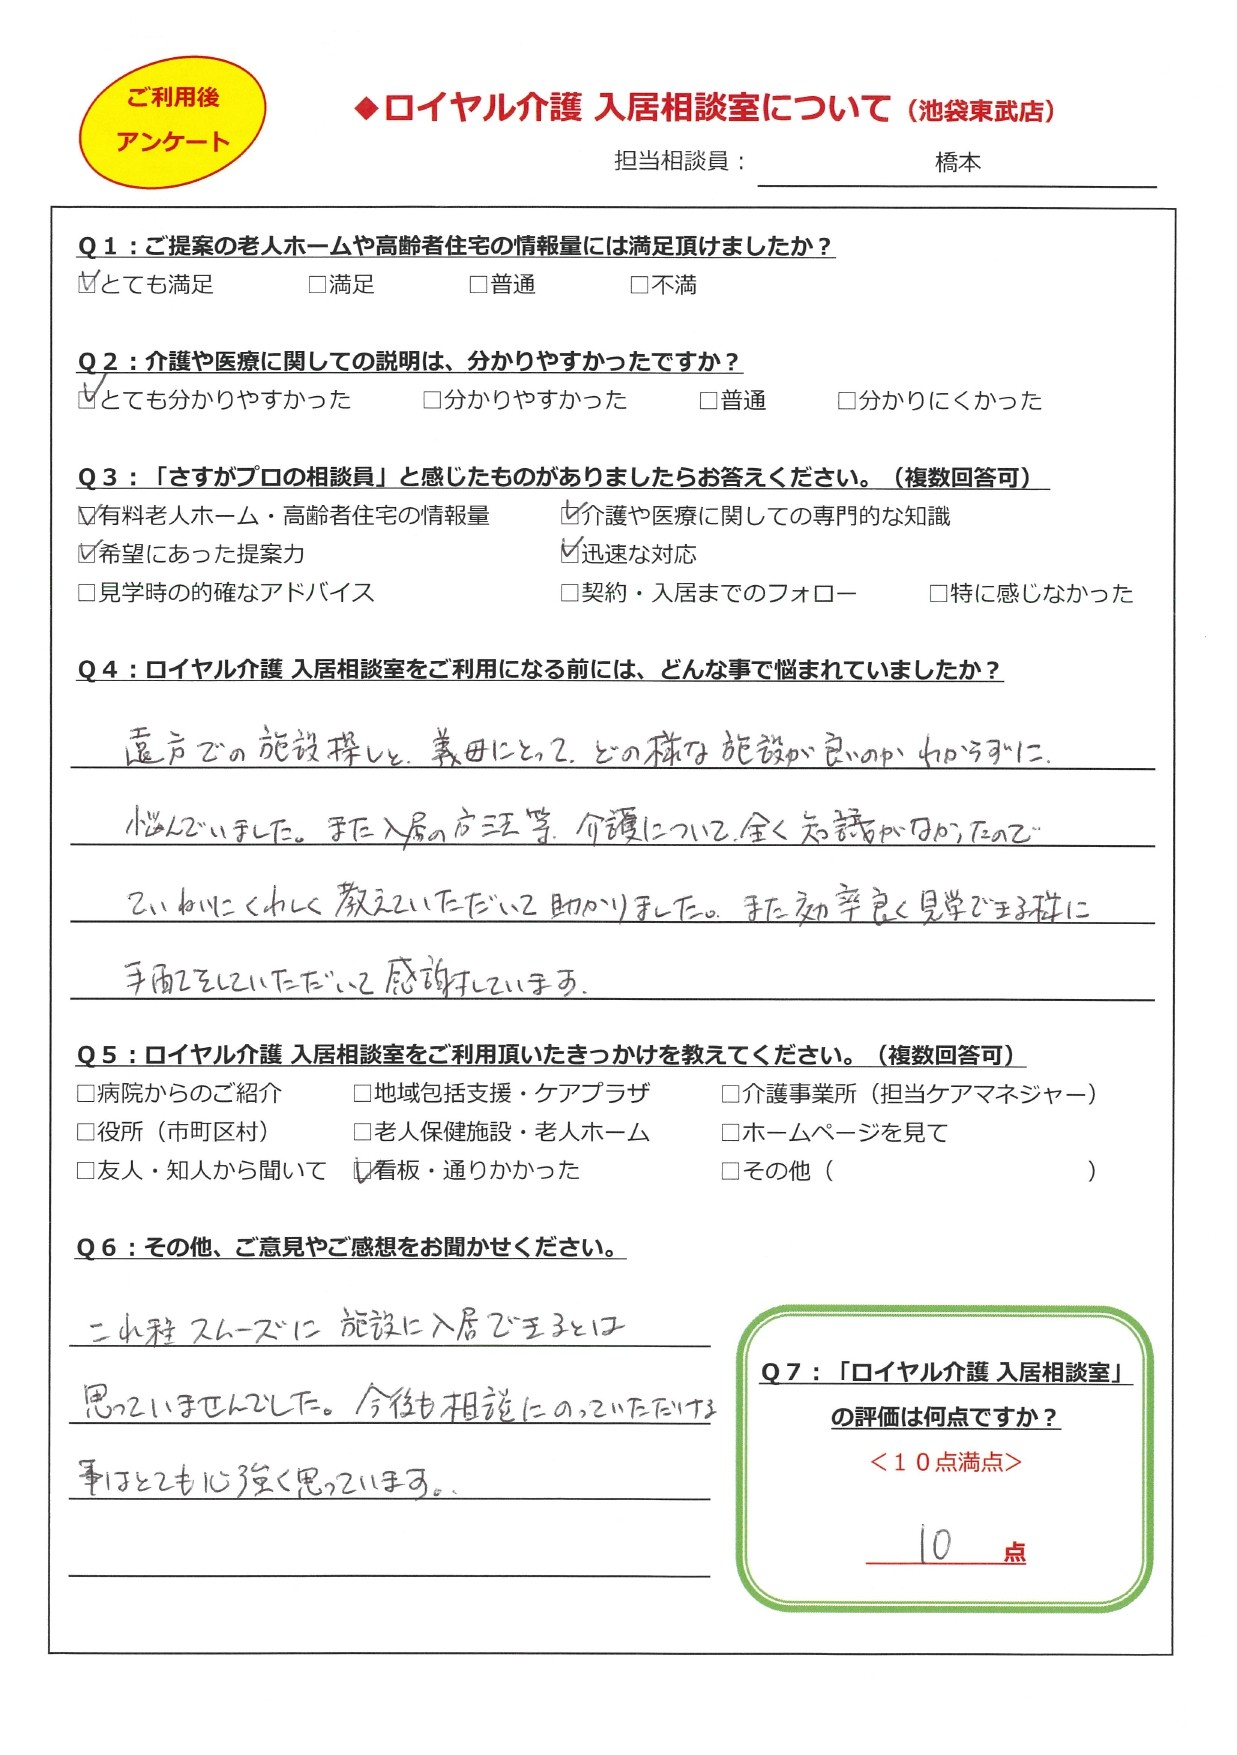 ご利用後
アンケート
◆ロイヤル介護 入居相談室について（池袋東武店）
担当相談員： 橋本
Ｑ１：ご提案の老人ホームや高齢者住宅の情報量には満足頂けましたか？
☑とても満足 □満足 □普通 □不満
Ｑ２：介護や医療に関しての説明は、分かりやすかったですか？
☑とても分かりやすかった □分かりやすかった □普通 □分かりにくかった
Ｑ３：「さすがプロの相談員」と感じたものがありましたらお答えください。（複数回答可）
☑有料老人ホーム・高齢者住宅の情報量 ☑介護や医療に関しての専門的な知識
☑希望にあった提案力 ☑迅速な対応
□見学時の的確なアドバイス □契約・入居までのフォロー □特に感じなかった
Ｑ４：ロイヤル介護 入居相談室をご利用になる前には、どんな事で悩まれていましたか？
遠方での施設探しと、義母にとって、どの様な施設が良いのかわからずに、
悩んでいました。また入居の方法等、介護について、全く知識がなかったので
ていねいにくわしく教えていただいて助かりました。また効率良く見学できる様に
手配をしていただいて感謝しています。
Ｑ５：ロイヤル介護 入居相談室をご利用頂いたきっかけを教えてください。（複数回答可）
□病院からのご紹介 □地域包括支援・ケアプラザ □介護事業所（担当ケアマネジャー）
□役所（市町区村） □老人保健施設・老人ホーム □ホームページを見て
□友人・知人から聞いて ☑看板・通りかかった □その他（ ）
Ｑ６：その他、ご意見やご感想をお聞かせください。
これ程スムーズに施設に入居できるとは
思っていませんでした。今後も相談にのっていただける
事はとても心強く思っています。
Ｑ７：「ロイヤル介護 入居相談室」
の評価は何点ですか？
＜１０点満点＞
10 点